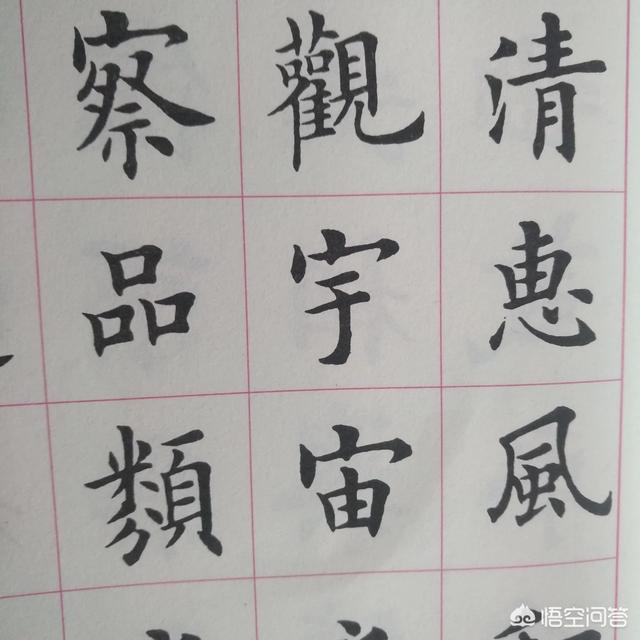 清惠風
觀宇宙
察品類
悟空问答